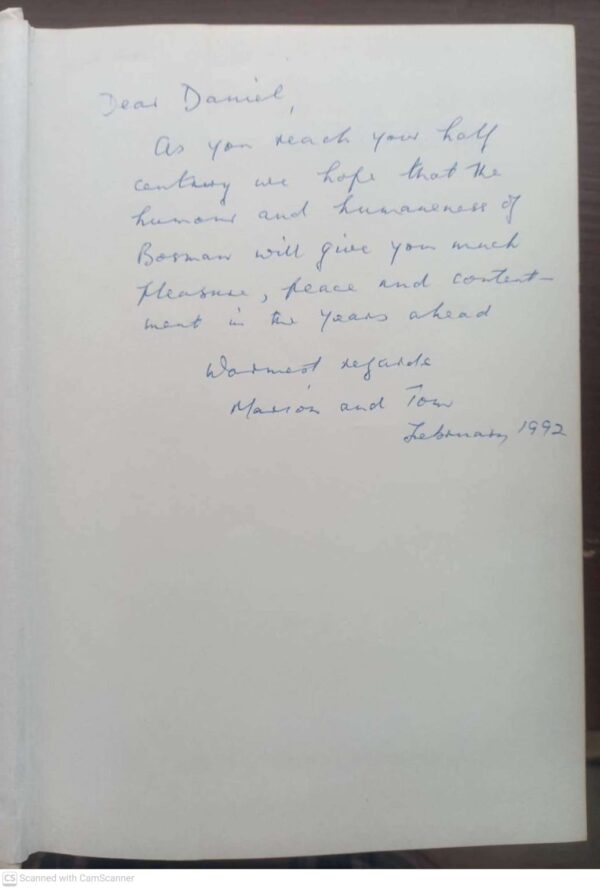 Dear Daniel,
As you reach your half
century we hope that the
humour and humaneness of
Bosman will give you much
pleasure, peace and content-
ment in the years ahead
Warmest regards
Marion and Tom
February 1992
CS Scanned with CamScanner